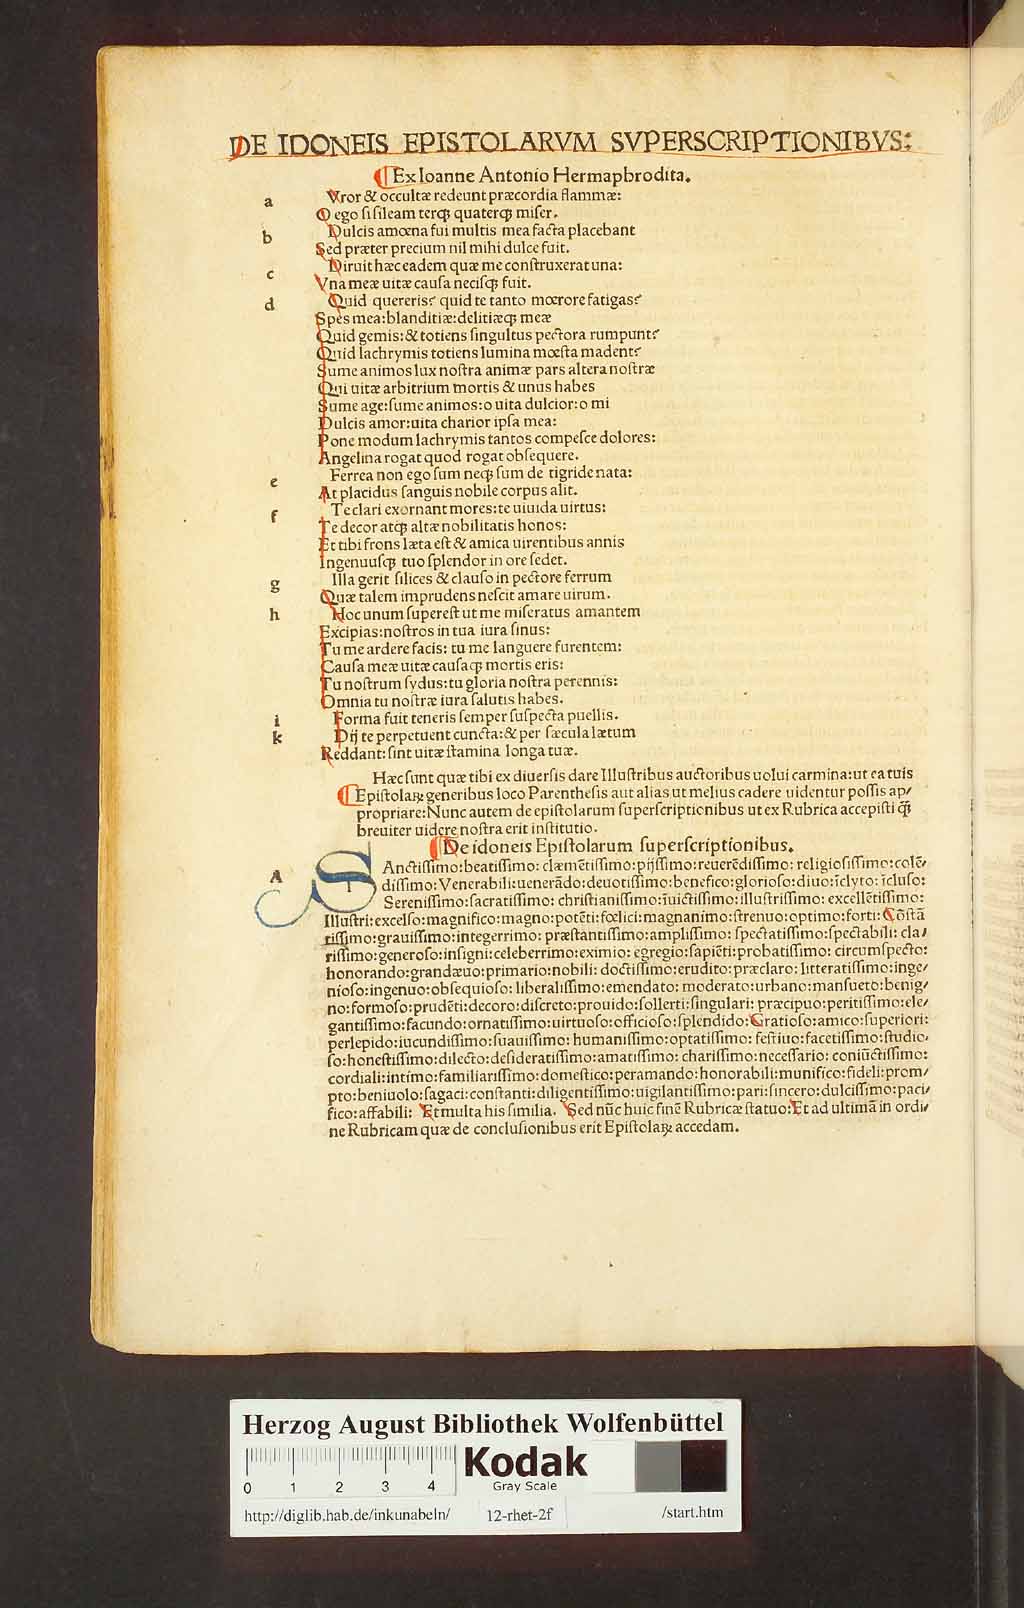 DE IDONEIS EPISTOLARVM SVPERSCRIPTIONIBVS:
Ex Ioanne Antonio Hermaphrodita.
a Vror & occultæ redeunt præcordia flammæ:
O ego si sileam terqꝫ quaterqꝫ miser.
b Dulcis amœna fui multis mea facta placebant
Sed præter precium nil mihi dulce fuit.
c Diruit hæc eadem quæ me construxerat una:
Vna meæ uitæ causa necisqꝫ fuit.
d Quid quereris? quid te tanto mœrore fatigas?
Spes mea: blanditiæ: delitiæqꝫ meæ
Quid gemis: & totiens singultus pectora rumpunt?
Quid lachrymis totiens lumina mœsta madent?
Sume animos lux nostra animæ pars altera nostræ
Qui uitæ arbitrium mortis & unus habes
Sume age: sume animos: o uita dulcior: o mi
Dulcis amor: uita charior ipsa mea:
Pone modum lachrymis tantos compesce dolores:
Angelina rogat quod rogat obsequere.
e Ferrea non ego sum neqꝫ sum de tigride nata:
At placidus sanguis nobile corpus alit.
f Te clari exornant mores: te uiuida uirtus:
Te decor atqꝫ altæ nobilitatis honos:
Et tibi frons læta est & amica uirentibus annis
Ingenuusqꝫ tuo splendor in ore sedet.
g Illa gerit silices & clauso in pectore ferrum
Quæ talem imprudens nescit amare uirum.
h Hoc unum superest ut me miseratus amantem
Excipias: nostros in tua iura sinus:
Tu me ardere facis: tu me languere furentem:
Causa meæ uitæ causaqꝫ mortis eris:
Tu nostrum sydus: tu gloria nostra perennis:
Omnia tu nostræ iura salutis habes.
i Forma fuit teneris semper suspecta puellis.
k Dij te perpetuent cuncta: & per sæcula lætum
Reddant: sint uitæ stamina longa tuæ.
Hæc sunt quæ tibi ex diuersis dare Illustribus auctoribus uolui carmina: ut ea tuis
Epistolaꝝ generibus loco Parenthesis aut alias ut melius cadere uidentur possis ap/
propriare: Nunc autem de epistolarum superscriptionibus ut ex Rubrica accepisti q̃ꝫ
breuiter uidere nostra erit institutio.
De idoneis Epistolarum superscriptionibus.
A SAnctissimo: beatissimo: clæmētissimo: pijssimo: reuerēdissimo: religiosissimo: colē/
dissimo: Venerabili: uenerãdo: deuotissimo: benefico: glorioso: diuo: īclyto: īcluso:
Serenissimo: sacratissimo: christianissimo: īuictissimo: illustrissimo: excellētissimo:
Illustri: excelso: magnifico: magno: potēti: fœlici: magnanimo: strenuo: optimo: forti: Cõstã
tissimo: grauissimo: integerrimo: præstantissimo: amplissimo: spectatissimo: spectabili: cla/
rissimo: generoso: insigni: celeberrimo: eximio: egregio: sapiēti: probatissimo: circumspecto:
honorando: grandæuo: primario: nobili: doctissimo: erudito: præclaro: litteratissimo: inge/
nioso: ingenuo: obsequioso: liberalissimo: emendato: moderato: urbano: mansueto: benig/
no: formoso: prudēti: decoro: discreto: prouido: sollerti: singulari: præcipuo: peritissimo: ele/
gantissimo: facundo: ornatissimo: uirtuoso: officioso: splendido: Gratioso: amico: superiori:
perlepido: iucundissimo: suauissimo: humanissimo: optatissimo: festiuo: facetissimo: studio/
so: honestissimo: dilecto: desideratissimo: amatissimo: charissimo: necessario: coniūctissimo:
cordiali: intimo: familiarissimo: domestico: peramando: honorabili: munifico: fideli: prom/
pto: beniuolo: sagaci: constanti: diligentissimo: uigilantissimo: pari: sincero: dulcissimo: paci/
fico: affabili: Et multa his similia. Sed nūc huic finē Rubricæ statuo: Et ad ultimã in ordi/
ne Rubricam quæ de conclusionibus erit Epistolaꝝ accedam.
Herzog August Bibliothek Wolfenbüttel
0 1 2 3 4
Kodak
Gray Scale
http://diglib.hab.de/inkunabeln/ 12-rhet-2f /start.htm